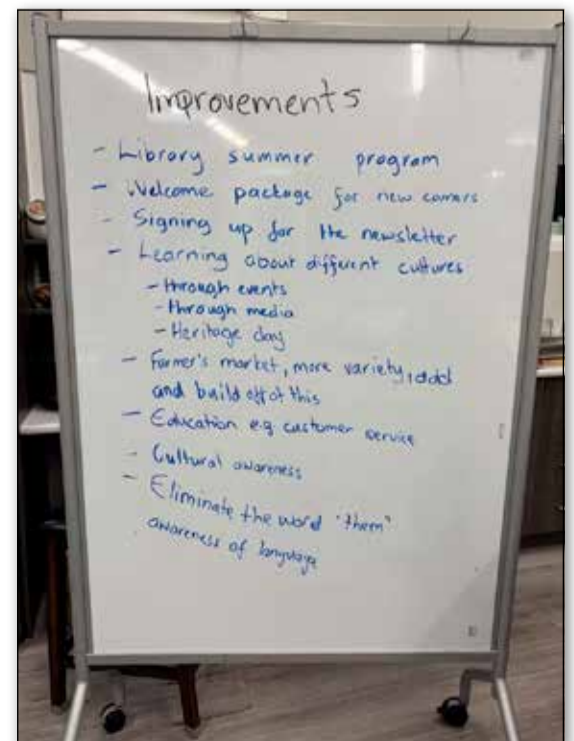 Improvements
- Library summer program
- Welcome package for new comers
- Signing up for the newsletter
- Learning about different cultures
- through events
- through media
- Heritage day
- Farmer's market, more variety, add
and build off of this
- Education e.g customer service
- Cultural awareness
- Eliminate the word "them"
awareness of language